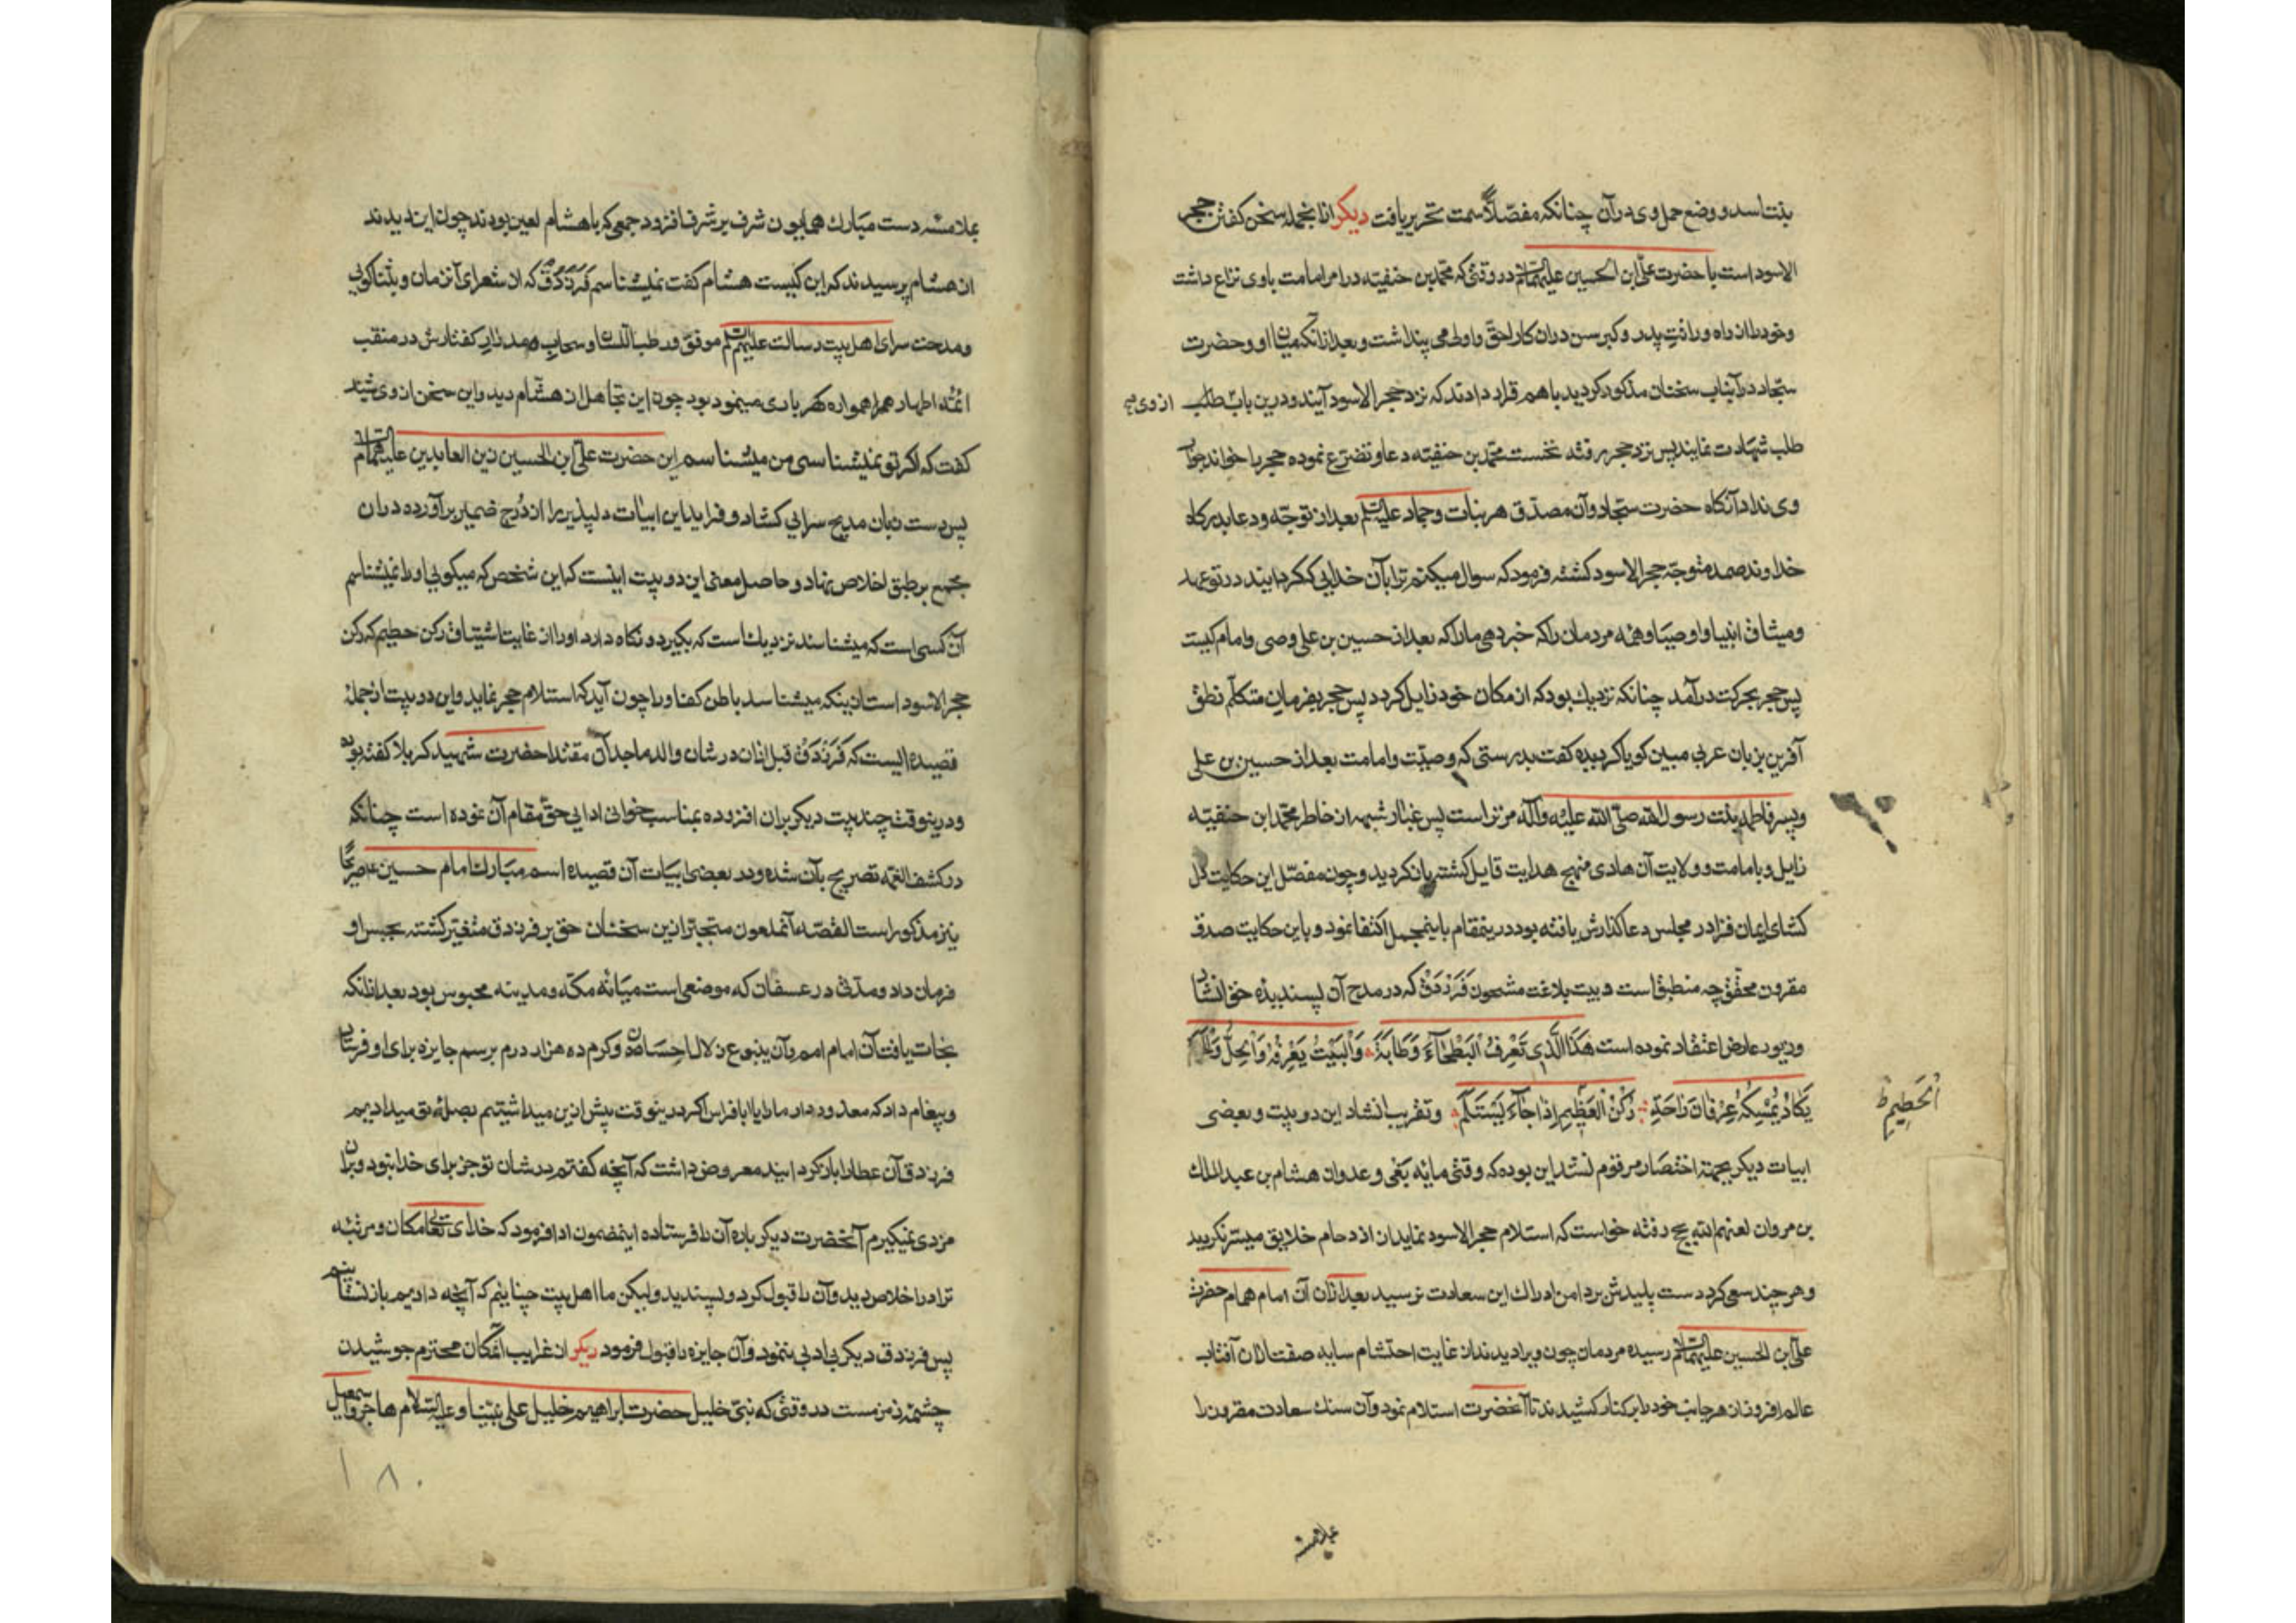 بنشاسد و وضع حمل وی در آن چنانکه مفصّلاً سمت تحریر یافت دیکر ازانجمله سخن کفتن حجر
الاسود است با حضرت علی ابن الحسین علیهما السلام در وقتی که محمد بن حنفیّه در امر امامت با وی نزاع داشت
وخود را از راه وراثت پدر و کبر سن دران کار احقّ واولی می پنداشت وبعد ازانکه میان او وحضرت
سجّاد در آنباب سخنان مذکور کردید با هم قرار دادند که نزد حجر الاسود آیند ودرین باب طلب
از وی صح
طلب شهادت نمایند پس نزد حجر رفته نخست محمّد بن حنفیّه دعا وتضرّع نموده حجر را خواند جواب
وی نداد آنکاه حضرت سجّاد وآن مصدّق هر نبات وجماد علیه السلام بعد از توجّه ودعا بدرکاه
خداوند صمد متوجّه حجر الاسود کشته فرمود که سوال میکنم ترا بآن خدایی که کردانیند در تو عهد
ومیثاق انبیا واوصیا وهمه مردمان را که خبر دهی ما را که بعد از حسین بن علی وصی وامام کیست
پس حجر بحرکت درآمد چنانکه نزدیك بود که از مکان خود زایل کردد پس حجر بفرمان متکلّم نطق
آفرین بزبان عربی مبین کویا کردیده کفت بدرستی که وصیّت وامامت بعد از حسین بن علی
وپسر فاطمه بنت رسول الله صلّی الله علیه وآله مر تراست پس غبار شبهه از خاطر محمّد ابن حنفیّه
زایل وبامامت وولایت آن هادی منهج هدایت قایل کشته بازکردید وچون مفصّل این حکایت دل
کشای ایمان فزا در مجلس دعا کذارش یافته بود درینمقام باینمجمل اکتفا نمود وباین حکایت صدق
مقرون محقّق چه منطبق است دو بیت بلاغت مشحون فَرَزْدَقْ که در مدح آن پسندیده حق انشاد
وزیور عارض اعتقاد نموده است هَذَا الَّذِی تَعْرِفُ الْبَطْحَاءُ وَطَابَتَهُ وَالْبَیْتُ یَعْرِفُهُ وَالْحِلُّ وَالْحَرَمُ
یَکَادُ یُمْسِکُهُ عِرْفَانَ رَاحَتِهِ رُکْنُ الْعَظِیمِ إِذَا جَاءَ یَسْتَلِمُ وتقریب انشاد این دو بیت وبعضی
الْحَطِیمِ ط
ابیات دیکر بجهة اختصار مرقوم نشد این بوده که وقتی مایه بغی وعدوان هشام بن عبد الملك
بن مروان لعنهم الله بحج رفته خواست که استلام حجر الاسود نماید از ازدحام خلایق میسّر نکردید
وهر چند سعی کرد دست پلیدش بر دامن ادراك این سعادت نرسید بعد ازان آن امام همام حضرت
علی ابن الحسین علیهما السلام رسیده مردمان چون ویرا دیدند از غایت احتشام سایه صفت ازان آفتاب
عالم افروز از هر جانب خود را بر کنار کشیدند تا آنحضرت استلام نمود وآن سنك سعادت مقرون را
بملامسه
بملامسه دست مبارك همایون شرف بر شرف افزود جمعی که با هشام لعین بودند چون این دیدند
از هشام پرسیدند که این کیست هشام کفت نمیشناسم فَرَزْدَقْ که از شعرای آنزمان وبثناکویی
ومدحت سرای اهل بیت رسالت علیهم السلام موفّق ورطب اللسان وسحاب کفتارش در منقب
ائمّه اطهار همواره کهرباری مینمود بود چون این تجاهل از هشام دید واین سخن از وی شنید
کفت که اکر تو نمیشناسی من میشناسم این حضرت علی ابن الحسین زین العابدین علیهما السلام
پس دست زبان مدیح سرایی کشاد وفراید این ابیات دلپذیر را از دُرج ضمیر برآورده دران
مجمع بر طبق اخلاص نهاد وحاصل معنی این دو بیت اینست که این شخص که میکویی او را نمیشناسم
آن کسی است که میشناسند نزدیك است که بکیرد ونکاه دارد او را از غایت اشتیاق رکن حطیم که رکن
حجر الاسود است ازینکه میشناسد باطن کف او را چون آید که استلام حجر نماید واین دو بیت ازجملهٔ
قصیده ایست که فَرَزْدَقْ قبل ازان در شان والد ماجد آن مقتدا حضرت شهید کربلا کفته بود
ودرینوقت چند بیت دیکر بران افزوده بمناسب خوانی ادایی حقّ مقام آن نموده است چنانکه
در کشف الغمّه تصریح بآن شده ودر بعضی ابیات آن قصیده اسم مبارك امام حسین ع صریحًا
نیز مذکور است القصّه آنملعون متجبّر ازین سخنان حق بر فرزدق متغیّر کشته بحبس او
فرمان داد ومدّتی در عسفان که موضعی است میانهٔ مکّه ومدینه محبوس بود بعد ازانکه
نجات یافت آن امام امم وآن ینبوع زلال احسان وکرم ده هزار درم برسم جایزه برای او فرستاد
وپیغام داد که معذور دار ما را یا ابا فراس اکر درینوقت بیش ازین میداشتیم بصلهٔ تو میدادیم
فرزدق آن عطا را باز کردانیند معروض داشت که آنچه کفتم در شان تو جز برای خدا نبود وبران
مزدی نمیکیرم آنحضرت دیکر باره آن را فرستاده اینمضمون ادا فرمود که خدای تعالی مکان ومرتبه
ترا در اخلاص دید وآن را قبول کرد وپسندید ولیکن ما اهل بیت چنانیم که آنچه دادیم باز نستانیم
پس فرزدق دیکر بی ادبی ننمود وآن جایزه را قبول فرمود دیکر از غرایب آنمکان محترم جوشیدن
چشمهٔ زمزمست در وقتی که نبیّ خلیل حضرت ابراهیم خلیل علی نبیّنا وعلیه السّلام هاجر واسمعیل
۱۸۰